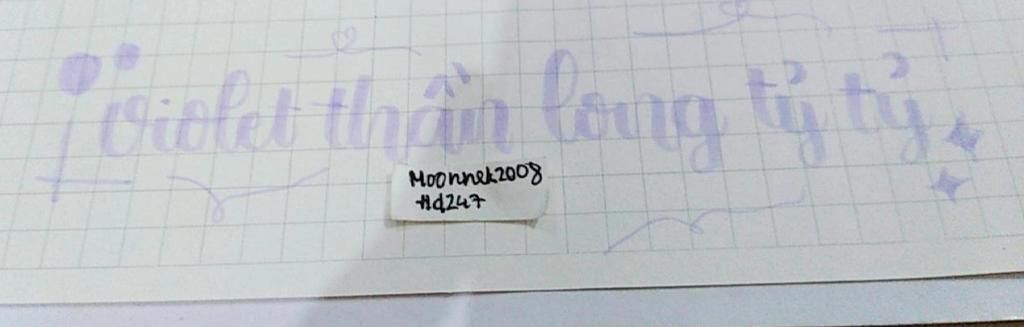 violet thần long tỷ tỷ
Moonnek2008
Hd247